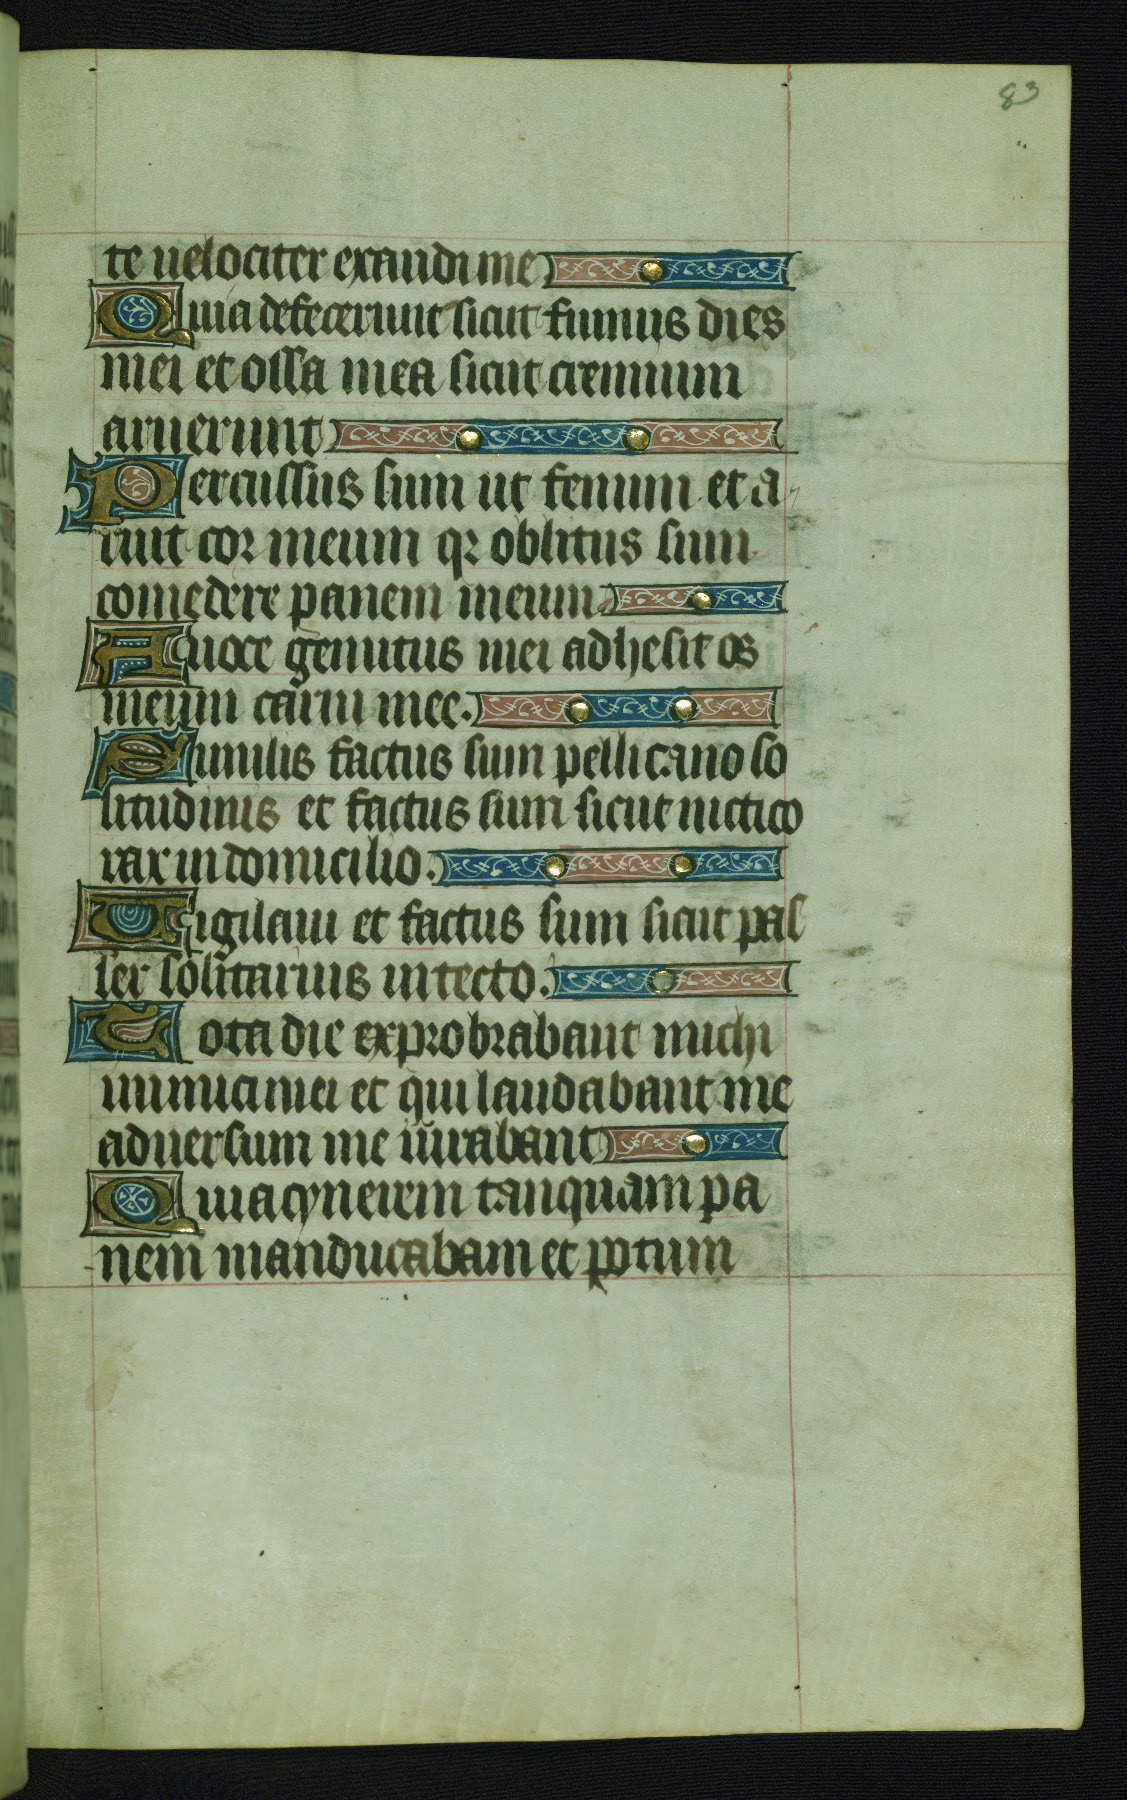 83
te uelociter exaudi me
Quia defecerunt sicut fumus dies
mei et ossa mea sicut cremium
aruerunt
Percussus sum ut fenum et a
ruit cor meum qr oblitus sum
comedere panem meum.
A uoce gemitus mei adhesit os
meum carni mee.
Similis factus sum pellicano so
litudinis et factus sum sicut nictico
rax in domicilio.
Vigilaui et factus sum sicut pas
ser solitarius in tecto.
Tota die exprobrabant michi
inimici mei et qui laudabant me
aduersum me iurabant
Quia cynerem tanquam pa
nem manducabam et potum